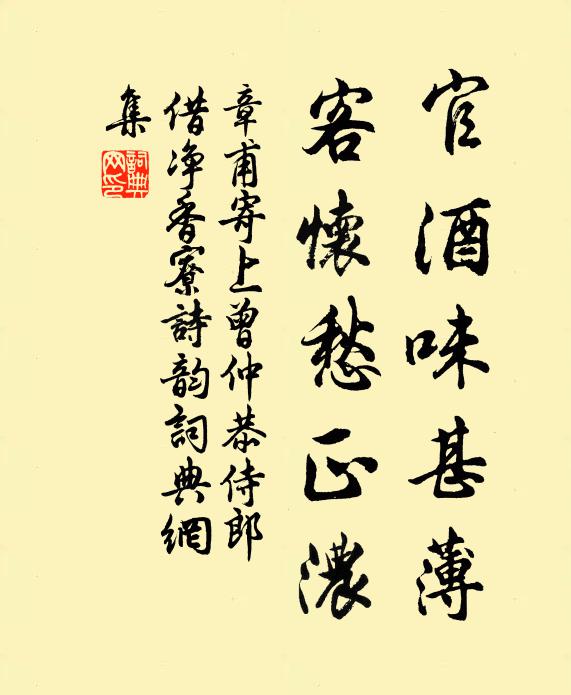 官酒味甚薄
客懷愁正濃
章甫寄上曾仲恭侍郎
借净香寮詩韵詞典網
集
詞典網印